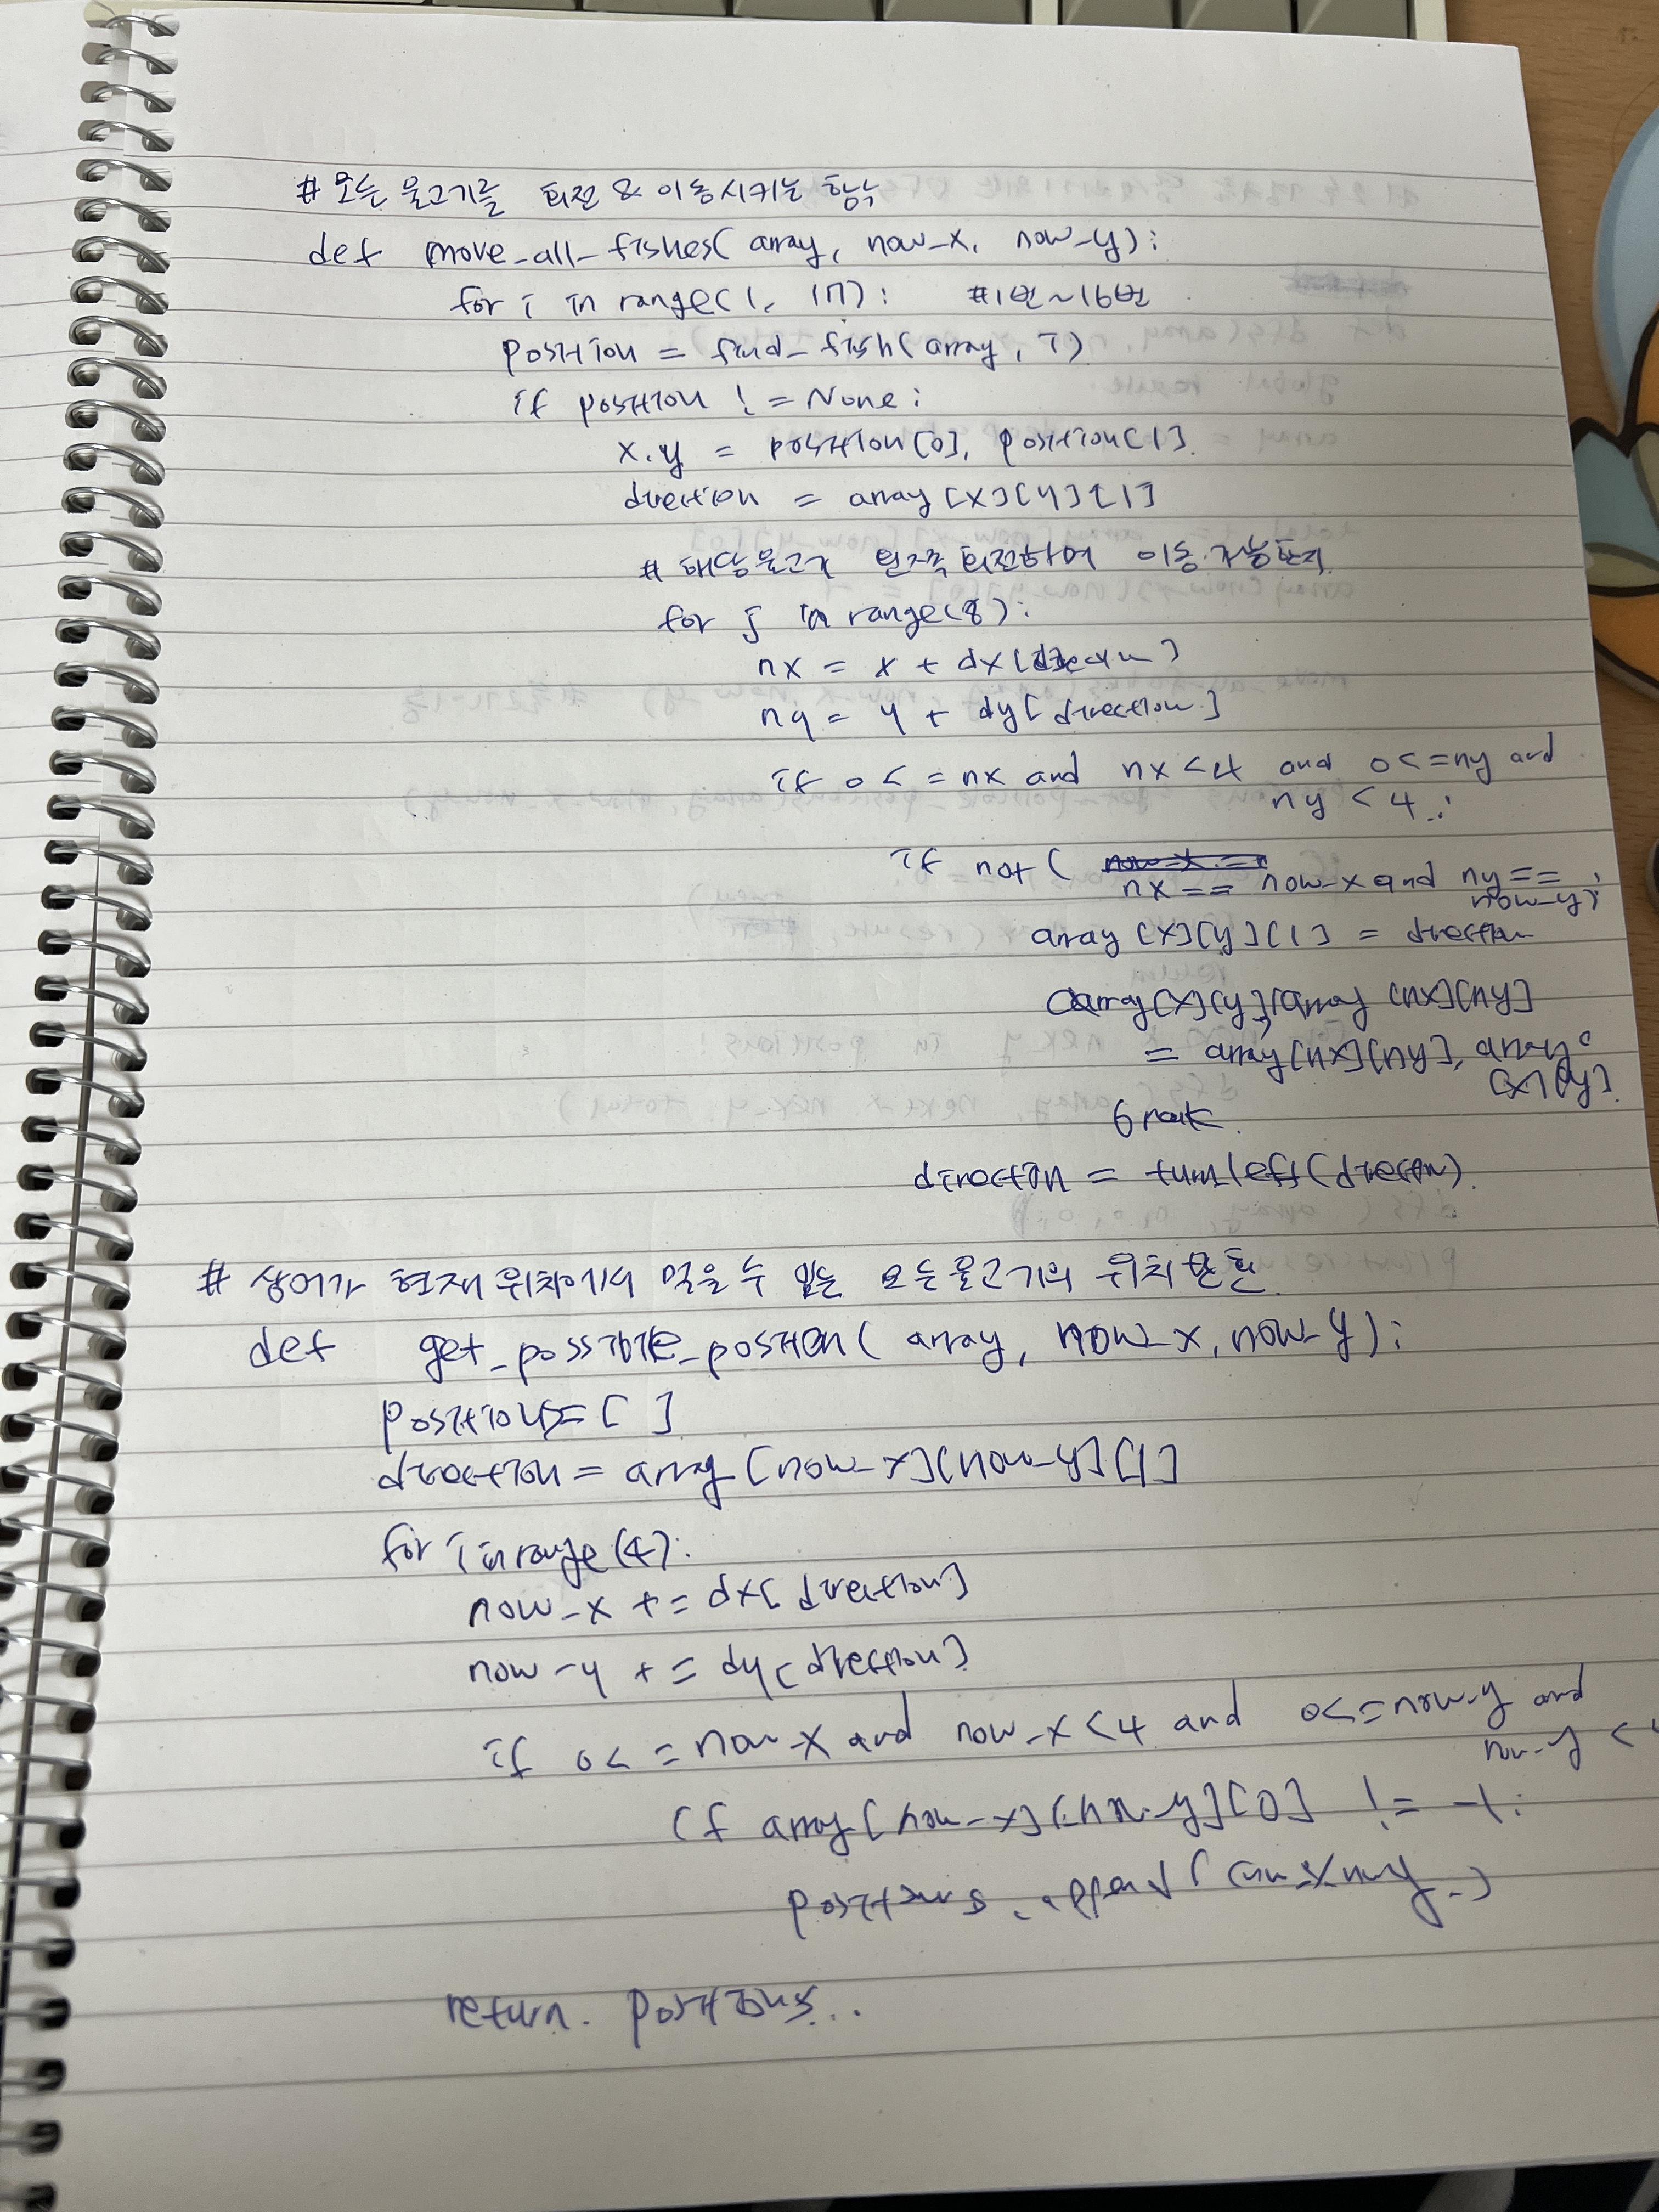 # 모든 물고기를 회전 & 이동시키는 함수
def move_all_fishes( array, now_x, now_y):
for i in range(1, 17): #1번~16번
position = find_fish(array, i)
if position != None:
x, y = position[0], position[1]
direction = array[x][y][1]
# 해당 물고기 왼쪽 회전하며 이동 가능한지
for j in range(8):
nx = x + dx[direction]
ny = y + dy[direction]
if 0 <= nx and nx < 4 and 0 <= ny and
ny < 4 :
if not (
nx == now_x and ny ==
now_y):
array [x][y][1] = direction
array[x][y], array [nx][ny]
= array[nx][ny], array
[x][y]
break
direction = turn_left(direction)
# 상어가 현재 위치에서 먹을 수 있는 모든 물고기의 위치 반환
def get_possible_position( array, now_x, now_y):
positions = [ ]
direction = array [now_x][now_y][1]
for i in range (4):
now_x += dx[direction]
now_y += dy[direction]
if 0 <= now_x and now_x < 4 and 0 <= now_y and
now_y <
if array[now_x][now_y][0] != -1:
positions.append(( now_x, now_y ))
return positions